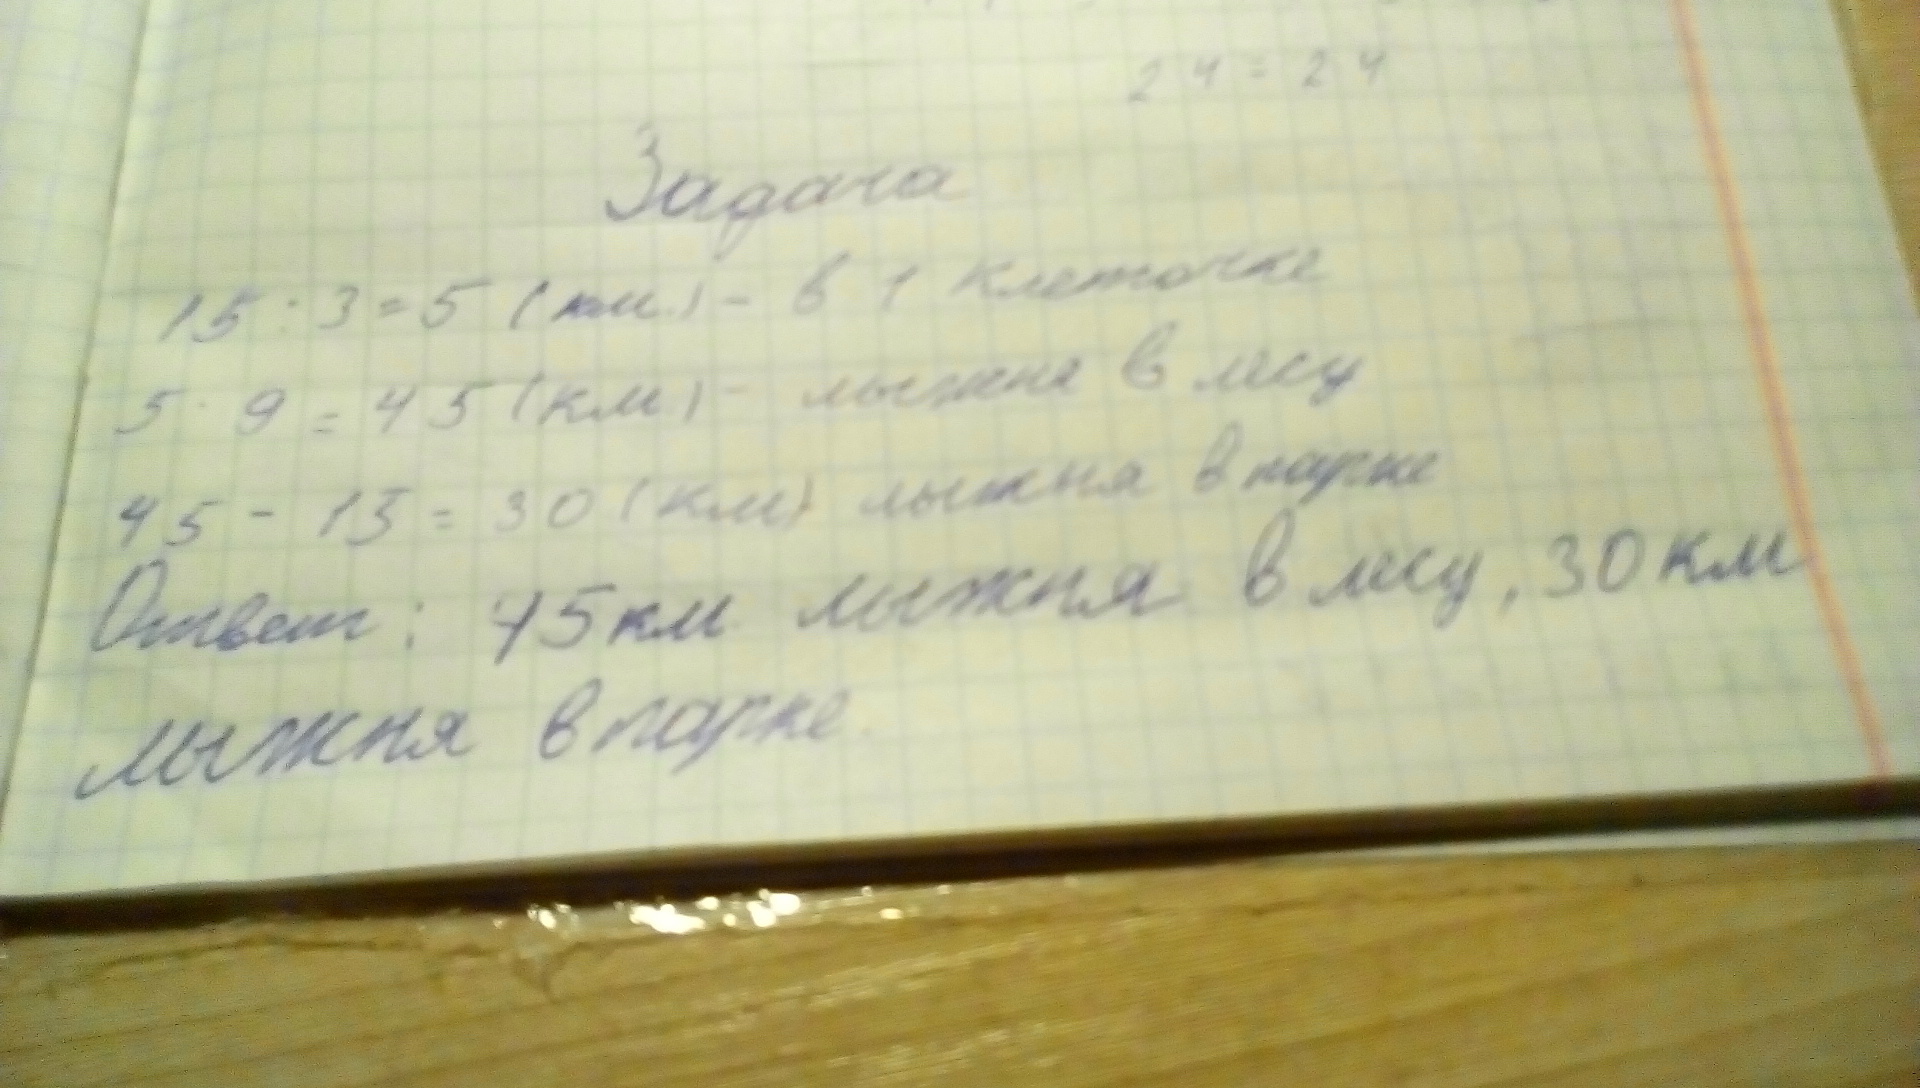 24 = 24
Задача
15 : 3 = 5 (км.) - в 1 клеточке
5 · 9 = 45 (км) - лыжня в лесу
45 - 15 = 30 (км) лыжня в парке
Ответ: 45 км лыжня в лесу, 30 км
лыжня в парке.